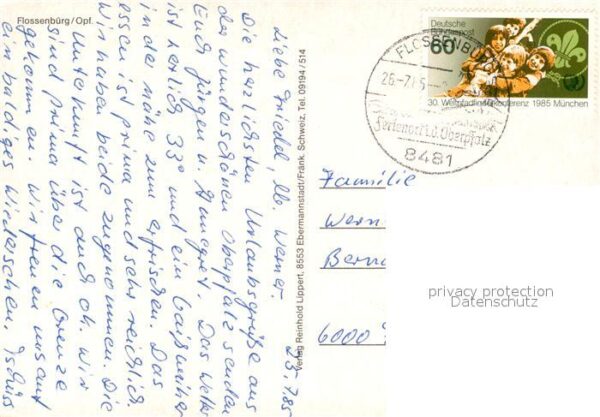 Flossenbürg/Opf.
23.7.85
Liebe Friedel, lb. Werner.
Die herzlichsten Urlaubsgrüße aus
der wunderschönen Oberpfalz senden
Euch Jürgen u. Annegret. Das Wetter
ist herrlich 33° und ein Gaißweiher
in der Nähe zum erfrischen. Das
essen ist prima und sehr reichlich.
Wir haben beide zugenommen. Die
Unterkunft ist auch ok. Wir
sind prima über die Grenze
gekommen. Wir freuen uns auf
ein baldiges Wiedersehen. Tschüss
Verlag Reinhold Lippert, 8553 Ebermannstadt/Fränk. Schweiz, Tel. 09194/514
Deutsche
Bundespost
60
30. Weltpfadfinderkonferenz 1985 München
FLOSSENBÜRG
26-7.85
Ferienort i.d. Oberpfalz
8481
Familie
Wern
Bern
6000
privacy protection
Datenschutz